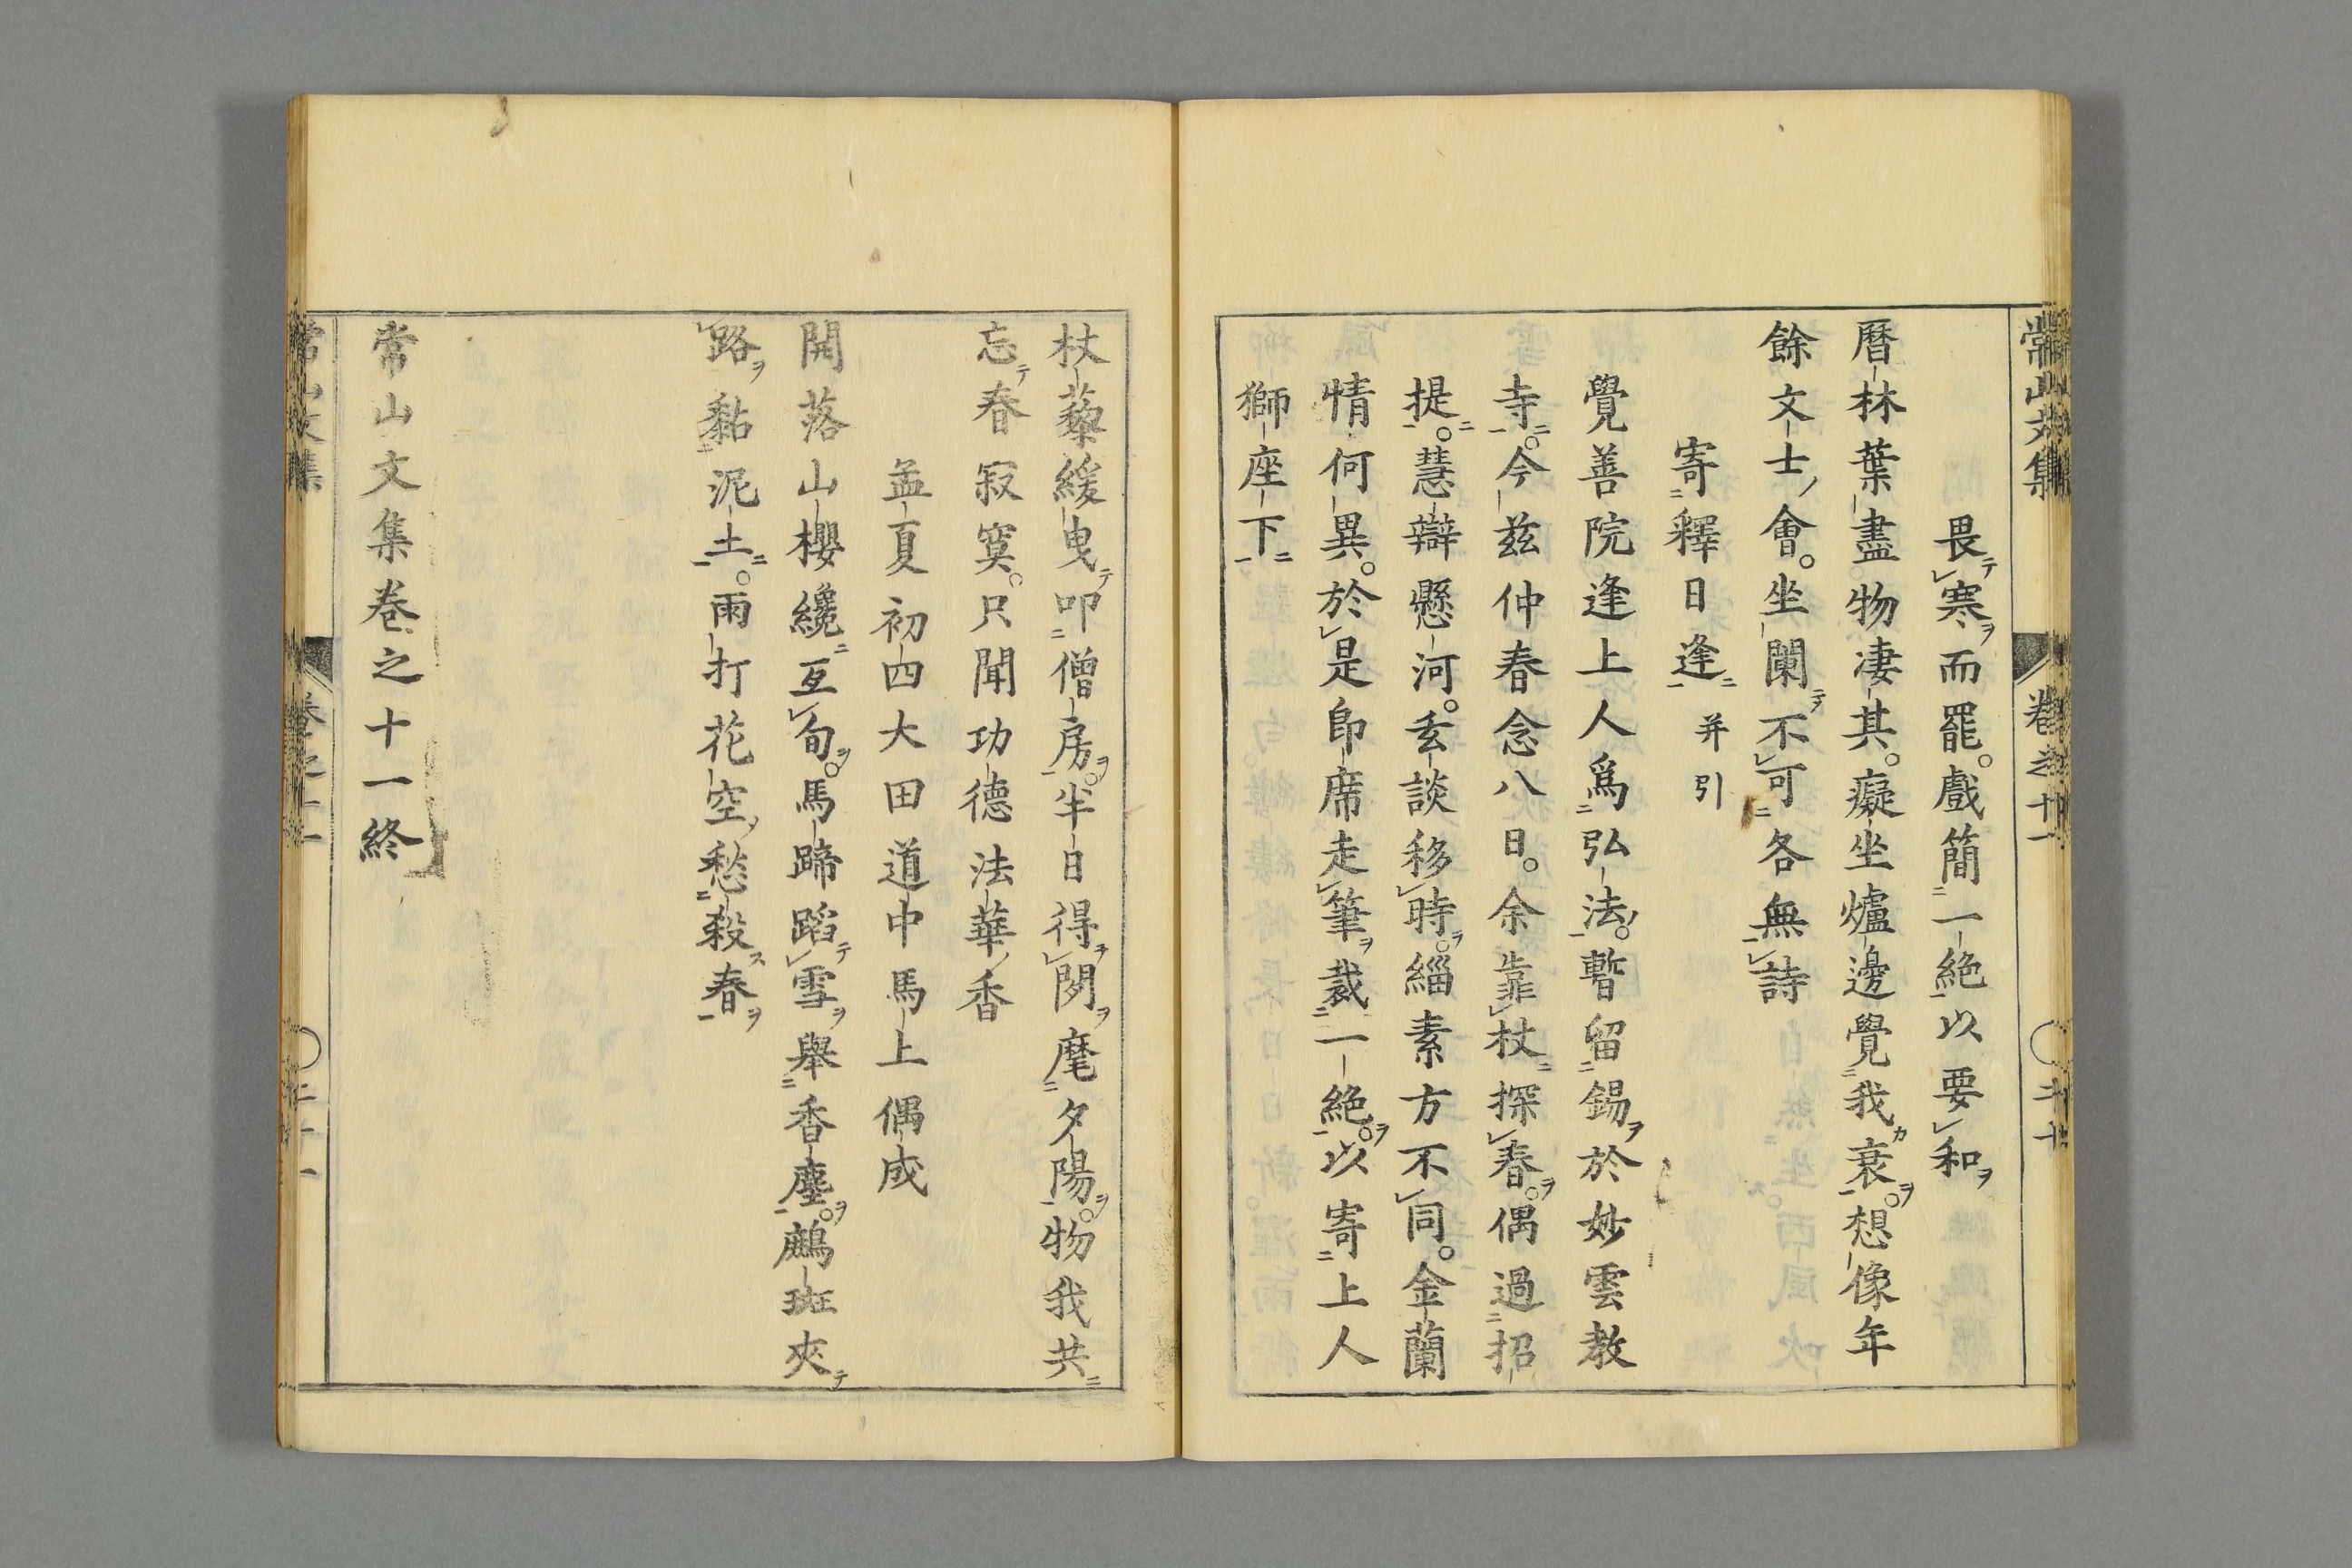 畏寒而罷。戲簡一絶以要和
曆林葉盡物凄其。癡坐爐邊覺我衰。想像年
餘文士會。坐闌不可各無詩
寄釋日逢 并引
覺善院逢上人爲弘法。暫留錫於妙雲教
寺。今茲仲春念八日。余靠杖探春。偶過招
提。慧辯懸河。玄談移時。緇素方不同。金蘭
情何異。於是卽席走筆裁一絶。以寄上人
獅座下
杖藜緩曳叩僧房。半日得閑麾夕陽。物我共
忘春寂寞。只聞功德法華香
孟夏初四大田道中馬上偶成
開落山櫻纔互旬。馬蹄蹈雪舉香塵。鷓斑夾
路黏泥土。雨打花空愁殺春
常山文集卷之十一終
常山文集 卷之十一